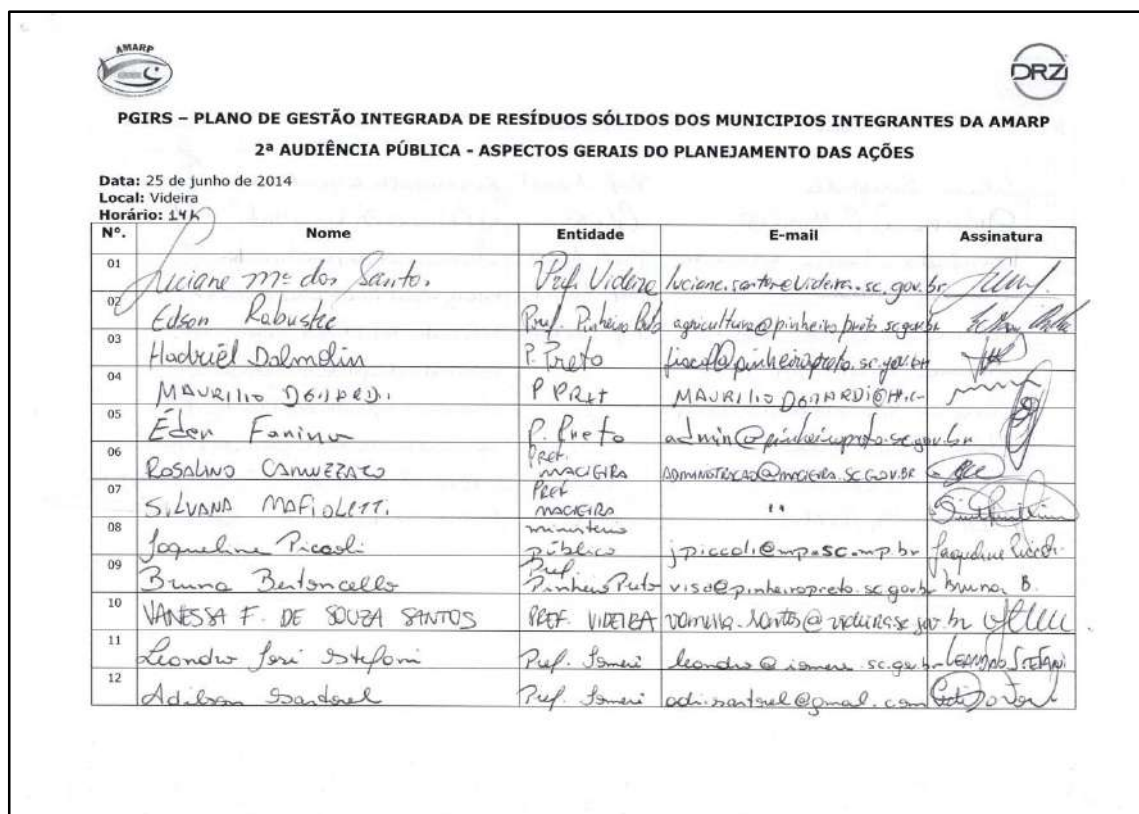 AMARP
DRZ
PGIRS – PLANO DE GESTÃO INTEGRADA DE RESÍDUOS SÓLIDOS DOS MUNICIPIOS INTEGRANTES DA AMARP
2ª AUDIÊNCIA PÚBLICA - ASPECTOS GERAIS DO PLANEJAMENTO DAS AÇÕES
Data: 25 de junho de 2014
Local: Videira
Horário: 14h
Nº. Nome Entidade E-mail Assinatura
01 Luciane Mª dos Santos Pref. Videira luciane.santos@videira.sc.gov.br
02 Edson Rabuske Pref. Pinheiro Preto agricultura@pinheiropreto.sc.gov.br
03 Hadriél Dalmolin P. Preto fiscal@pinheiropreto.sc.gov.br
04 MAURILIO P PRET MAURILIO
05 Éder P. Preto admin@pinheiropreto.sc.gov.br
06 ROSALINO CAMUZZATO Pref. MACIEIRA ADMINISTRACAO@MACIEIRA.SC.GOV.BR
07 SILVANA MAFIOLETTI Pref MACIEIRA "
08 Jaqueline Piccoli ministério público jpiccoli@mp.sc.mp.br Jaqueline Piccoli
09 Bruna Bertoncello Pref. Pinheiro Preto visa@pinheiropreto.sc.gov.br Bruna B.
10 VANESSA F. DE SOUZA SANTOS PREF. VIDEIRA vanessa.santos@videira.sc.gov.br
11 Leandro José Stefani Pref. Iomerê leandro@iomere.sc.gov.br LEANDRO STEFANI
12 Adilson Sartorel Pref. Iomerê adi.sartorel@gmail.com